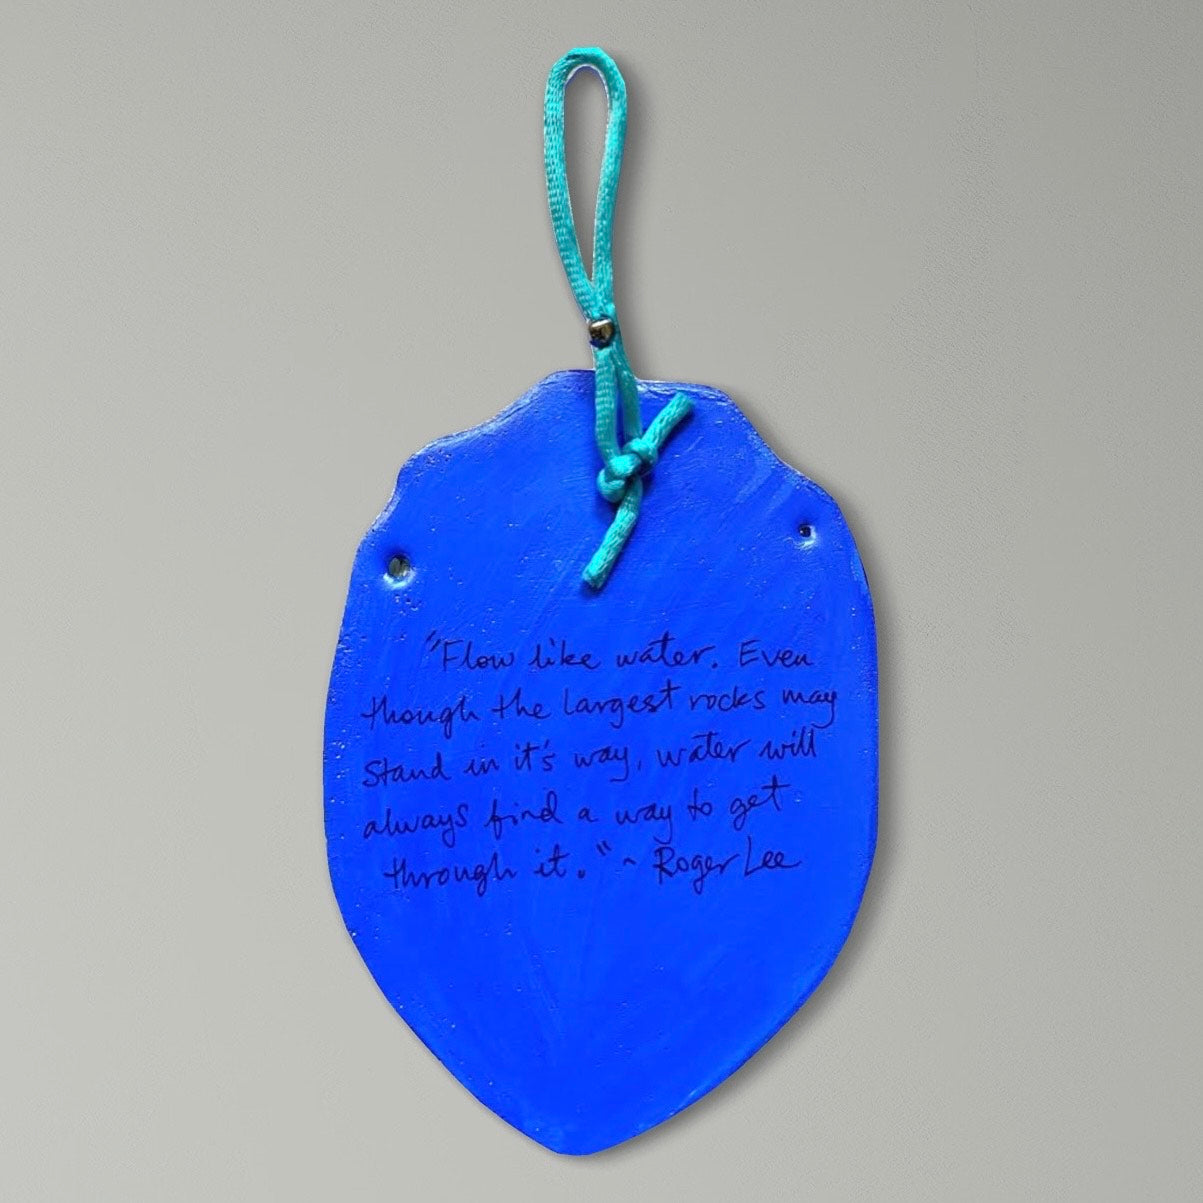 "Flow like water. Even
though the largest rocks may
stand in it's way, water will
always find a way to get
through it." ~ Roger Lee